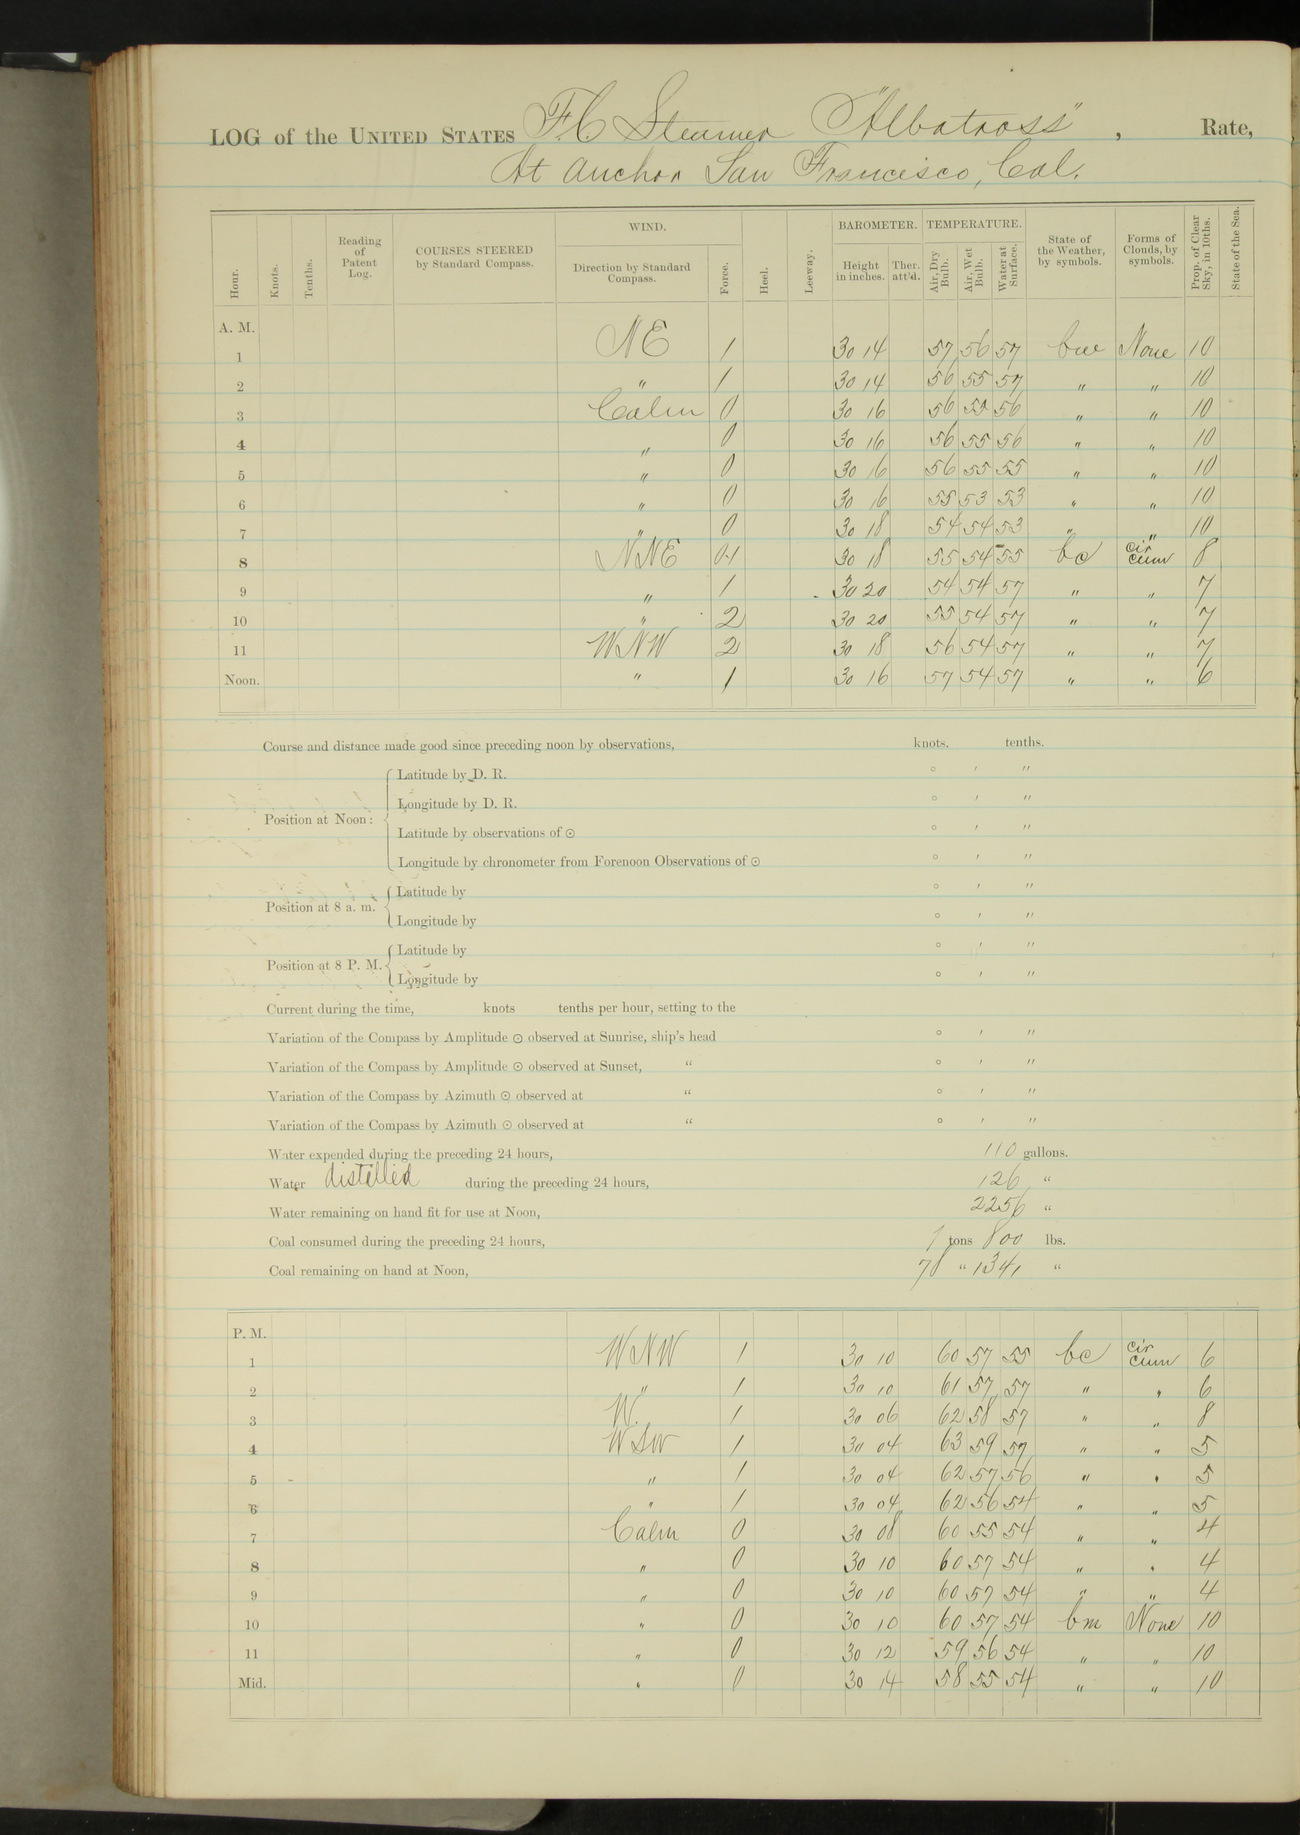 LOG of the UNITED STATES F.C. Steamer "Albatross", Rate,
At anchor San Francisco, Cal.
Hour. Knots. Tenths. Reading of Patent Log. COURSES STEERED by Standard Compass. WIND. Direction by Standard Compass. Force. Heel. Leeway. BAROMETER. Height in inches. Ther. att'd. TEMPERATURE. Air, Dry Bulb. Air, Wet Bulb. Water at Surface. State of the Weather, by symbols. Forms of Clouds, by symbols. Prop. of Clear Sky, in 10ths. State of the Sea.
A. M.
1 NE 1 30 14 57 56 57 bw None 10
2 " 1 30 14 56 55 57 " " 10
3 Calm 0 30 16 56 55 56 " " 10
4 " 0 30 16 56 55 56 " " 10
5 " 0 30 16 56 55 55 " " 10
6 " 0 30 16 55 53 53 " " 10
7 " 0 30 18 54 54 53 " " 10
8 NNE 0-1 30 18 55 54 55 bc cir cum 8
9 " 1 30 20 54 54 57 " " 7
10 " 2 30 20 55 54 57 " " 7
11 WNW 2 30 18 56 54 57 " " 7
Noon. " 1 30 16 57 54 57 " " 6
Course and distance made good since preceding noon by observations, knots. tenths.
Position at Noon:
Latitude by D. R. ° ′ ″
Longitude by D. R. ° ′ ″
Latitude by observations of ☉ ° ′ ″
Longitude by chronometer from Forenoon Observations of ☉ ° ′ ″
Position at 8 a. m.
Latitude by ° ′ ″
Longitude by ° ′ ″
Position at 8 P. M.
Latitude by ° ′ ″
Longitude by ° ′ ″
Current during the time, knots tenths per hour, setting to the
Variation of the Compass by Amplitude ☉ observed at Sunrise, ship's head ° ′ ″
Variation of the Compass by Amplitude ☉ observed at Sunset, " ° ′ ″
Variation of the Compass by Azimuth ☉ observed at " ° ′ ″
Variation of the Compass by Azimuth ☉ observed at " ° ′ ″
Water expended during the preceding 24 hours, 110 gallons.
Water distilled during the preceding 24 hours, 126 "
Water remaining on hand fit for use at Noon, 2256 "
Coal consumed during the preceding 24 hours, 1 tons 800 lbs.
Coal remaining on hand at Noon, 78 " 1341 "
P. M.
1 WNW 1 30 10 60 57 55 bc cir cum 6
2 " 1 30 10 61 57 57 " " 6
3 W. 1 30 06 62 58 57 " " 8
4 WSW 1 30 04 63 59 57 " " 5
5 " 1 30 04 62 57 56 " " 5
6 " 1 30 04 62 56 54 " " 5
7 Calm 0 30 08 60 55 54 " " 4
8 " 0 30 10 60 57 54 " " 4
9 " 0 30 10 60 57 54 " " 4
10 " 0 30 10 60 57 54 bm None 10
11 " 0 30 12 59 56 54 " " 10
Mid. " 0 30 14 58 55 54 " " 10